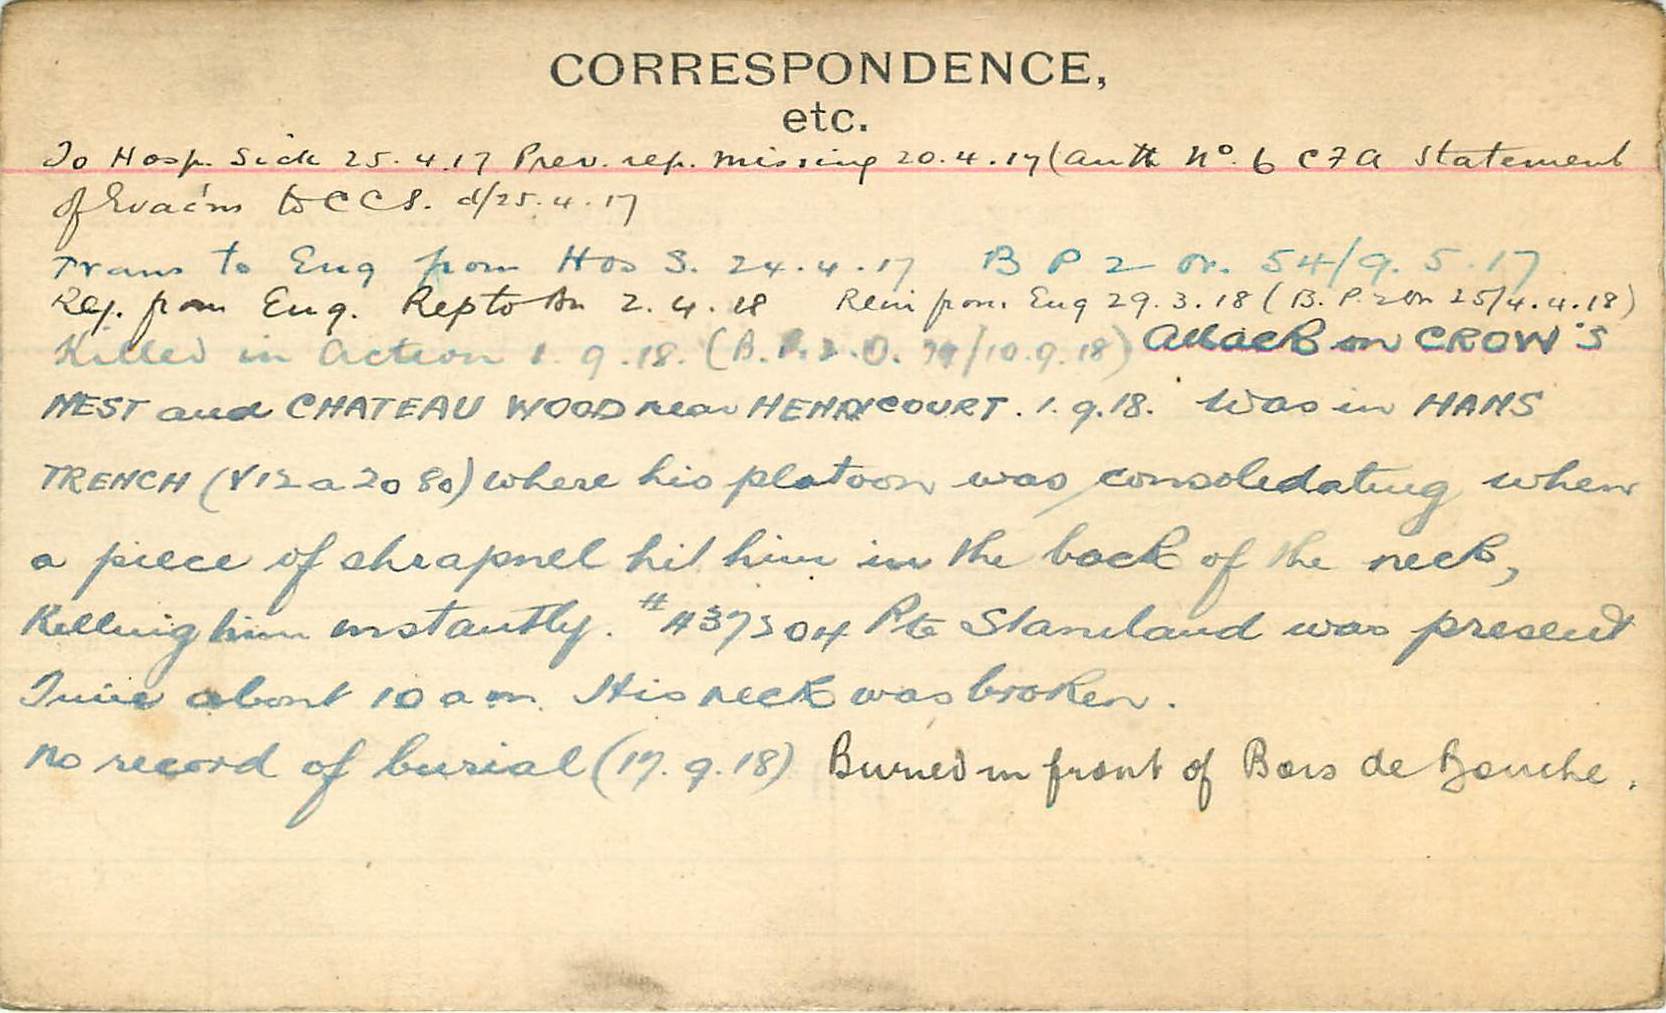 CORRESPONDENCE,
etc.
To Hosp. Sick 25.4.17 Prev. rep. missing 20.4.17 (Auth No. 6 CFA Statement
of Evac'ns to CCS. d/25.4.17
Trans to Eng from Hos S. 24.4.17 B P 2 Or. 54/9.5.17
Rej. from Eng. Rep to Bn 2.4.18 Rein from Eng 29.3.18 (B.P.2 Or 25/4.4.18)
Killed in Action 1.9.18. (B.P.2.O. /10.9.18) Attack on CROW'S
NEST and CHATEAU WOOD near HENDICOURT. 1.9.18. Was in HANS
TRENCH (V12 a 20 80) where his platoon was consolidating when
a piece of shrapnel hit him in the back of the neck,
Killing him instantly. # Pte Staniland was present
Time about 10 am. His neck was broken.
No record of burial (17.9.18) Buried in front of Bois de Bouche.